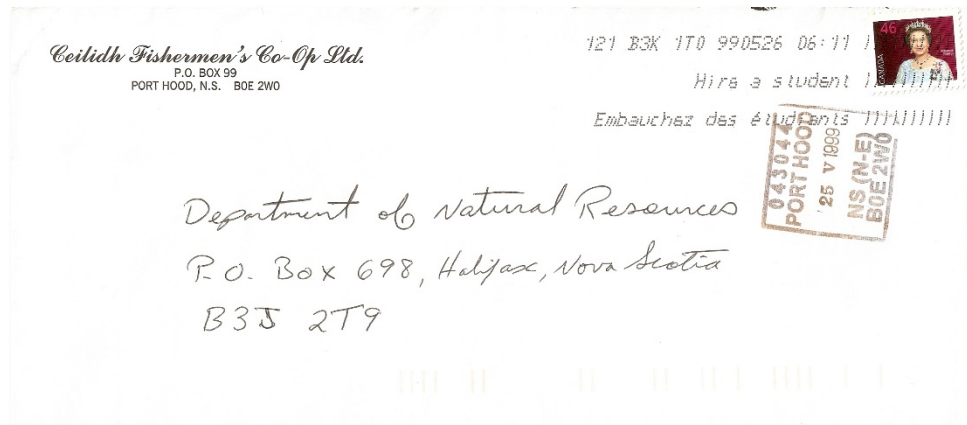 Ceilidh Fishermen's Co-Op Ltd.
P.O. BOX 99
PORT HOOD, N.S. BOE 2WO
121 B3K 1T0 990526 06:11
Hire a student
Embauchez des étudiants
46
CANADA
043044
PORT HOOD
25 V 1999
NS (N-E)
B0E 2W0
Department of Natural Resources
P.O. Box 698, Halifax, Nova Scotia
B3J 2T9